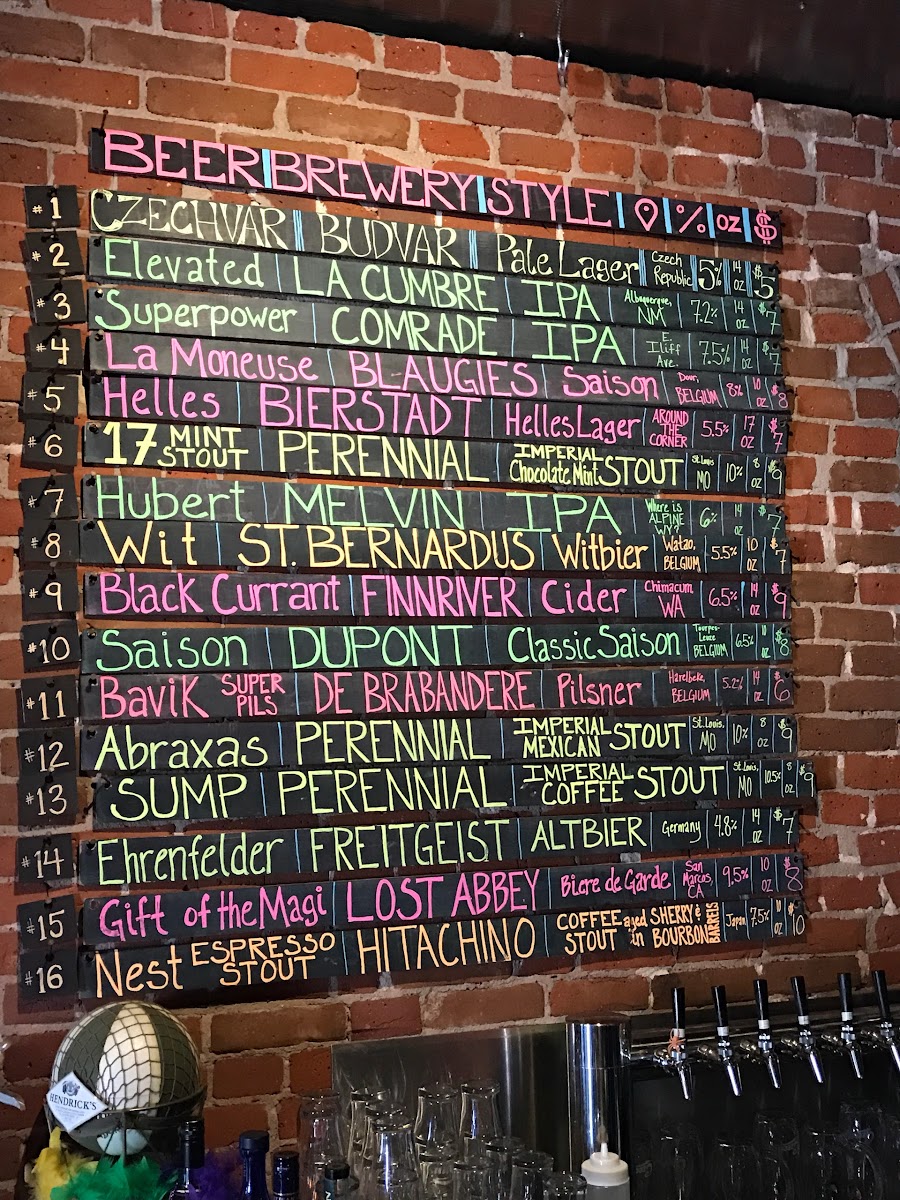 BEER BREWERY STYLE % OZ $
#1 CZECHVAR BUDVAR Pale Lager Czech Republic 5% 14 oz $5
#2 Elevated LA CUMBRE IPA Albuquerque, NM 7.2% 14 oz $7
#3 Superpower COMRADE IPA E. Iliff Ave. 7.5% 14 oz $7
#4 La Moneuse BLAUGIES Saison Dour, BELGIUM 8% 10 oz $8
#5 Helles BIERSTADT Helles Lager AROUND THE CORNER 5.5% 17 oz $7
#6 17 MINT STOUT PERENNIAL IMPERIAL Chocolate Mint STOUT St. Louis MO 10% 8 oz $9
#7 Hubert MELVIN IPA Where is ALPINE WY? 6% 14 oz $7
#8 Wit ST. BERNARDUS Witbier Watou, BELGIUM 5.5% 10 oz $7
#9 Black Currant FINNRIVER Cider Chimacum WA 6.5% 14 oz $9
#10 Saison DUPONT Classic Saison BELGIUM 6.5% 10 oz $8
#11 Bavik SUPER PILS DE BRABANDERE Pilsner Harelbeke, BELGIUM 5.2% 14 oz $6
#12 Abraxas PERENNIAL IMPERIAL MEXICAN STOUT St. Louis, MO 10% 8 oz $9
#13 SUMP PERENNIAL IMPERIAL COFFEE STOUT St. Louis, MO 10.5% 8 oz $9
#14 Ehrenfelder FREITGEIST ALTBIER Germany 4.8% 14 oz $7
#15 Gift of the Magi LOST ABBEY Biere de Garde San Marcos, CA 9.5% 10 oz $8
#16 Nest ESPRESSO STOUT HITACHINO COFFEE STOUT aged in SHERRY & BOURBON BARRELS Japan 7.5% 10 oz $10
HENDRICK'S